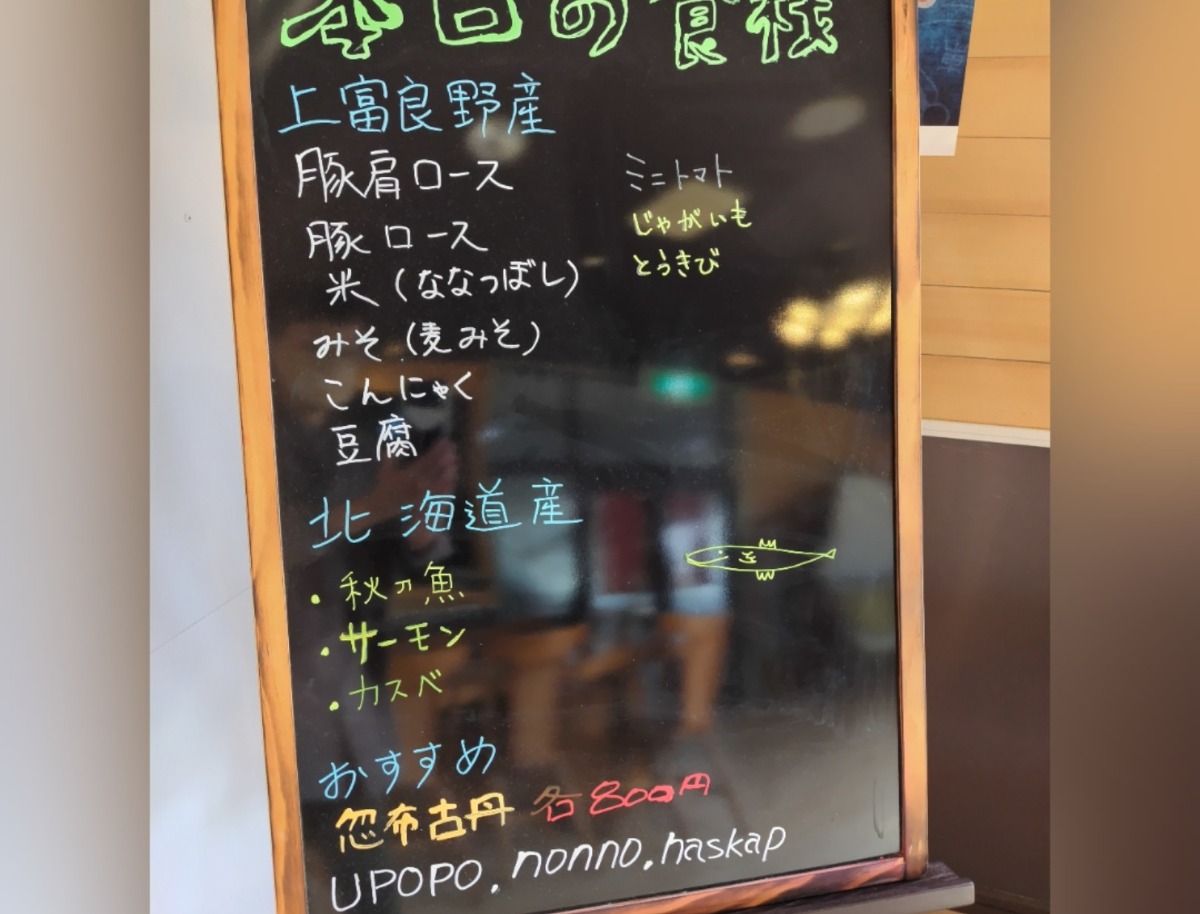 本日の食材
上富良野産
豚肩ロース
ミニトマト
豚ロース
じゃがいも
米(ななつぼし)
とうきび
みそ(麦みそ)
こんにゃく
豆腐
北海道産
・秋刀魚
・サーモン
・カスベ
おすすめ
忽布古丹 各800円
UPOPO.nonno.haskap